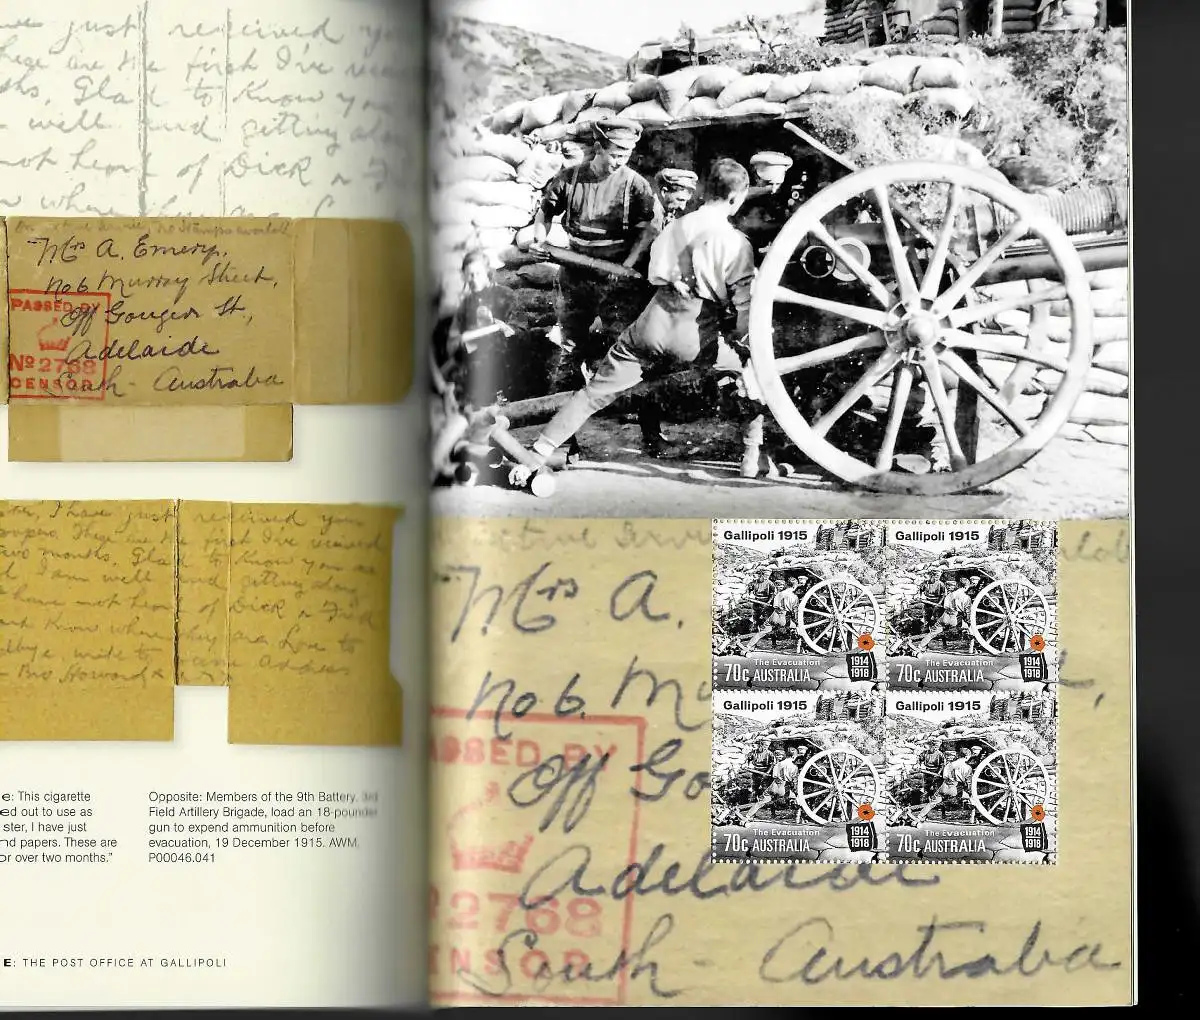 just received
are the first I've
Glad to know you
well and getting
not heard of Dick
Mrs A. Emery,
No 6 Murray Street,
Off Gouger St,
Adelaide
South - Australia
PASSED BY
No 2768
CENSOR
I have just received your
papers. These are the first I've received
two months. Glad to know you are
I am well and getting along
have not heard of Dick
know where they are. Love to
write to same address
Bro, Howard x
e: This cigarette
ed out to use as
ster, I have just
nd papers. These are
or over two months."
Opposite: Members of the 9th Battery, 3rd
Field Artillery Brigade, load an 18-pounder
gun to expend ammunition before
evacuation, 19 December 1915. AWM
P00046.041
E: THE POST OFFICE AT GALLIPOLI
Mrs A.
No 6. Mu
Off Go
Adelaide
South - Australia
ASSED BY
2768
NSOR
Gallipoli 1915
The Evacuation
70c AUSTRALIA
1914
1918
Gallipoli 1915
The Evacuation
70c AUSTRALIA
1914
1918
Gallipoli 1915
The Evacuation
70c AUSTRALIA
1914
1918
Gallipoli 1915
The Evacuation
70c AUSTRALIA
1914
1918